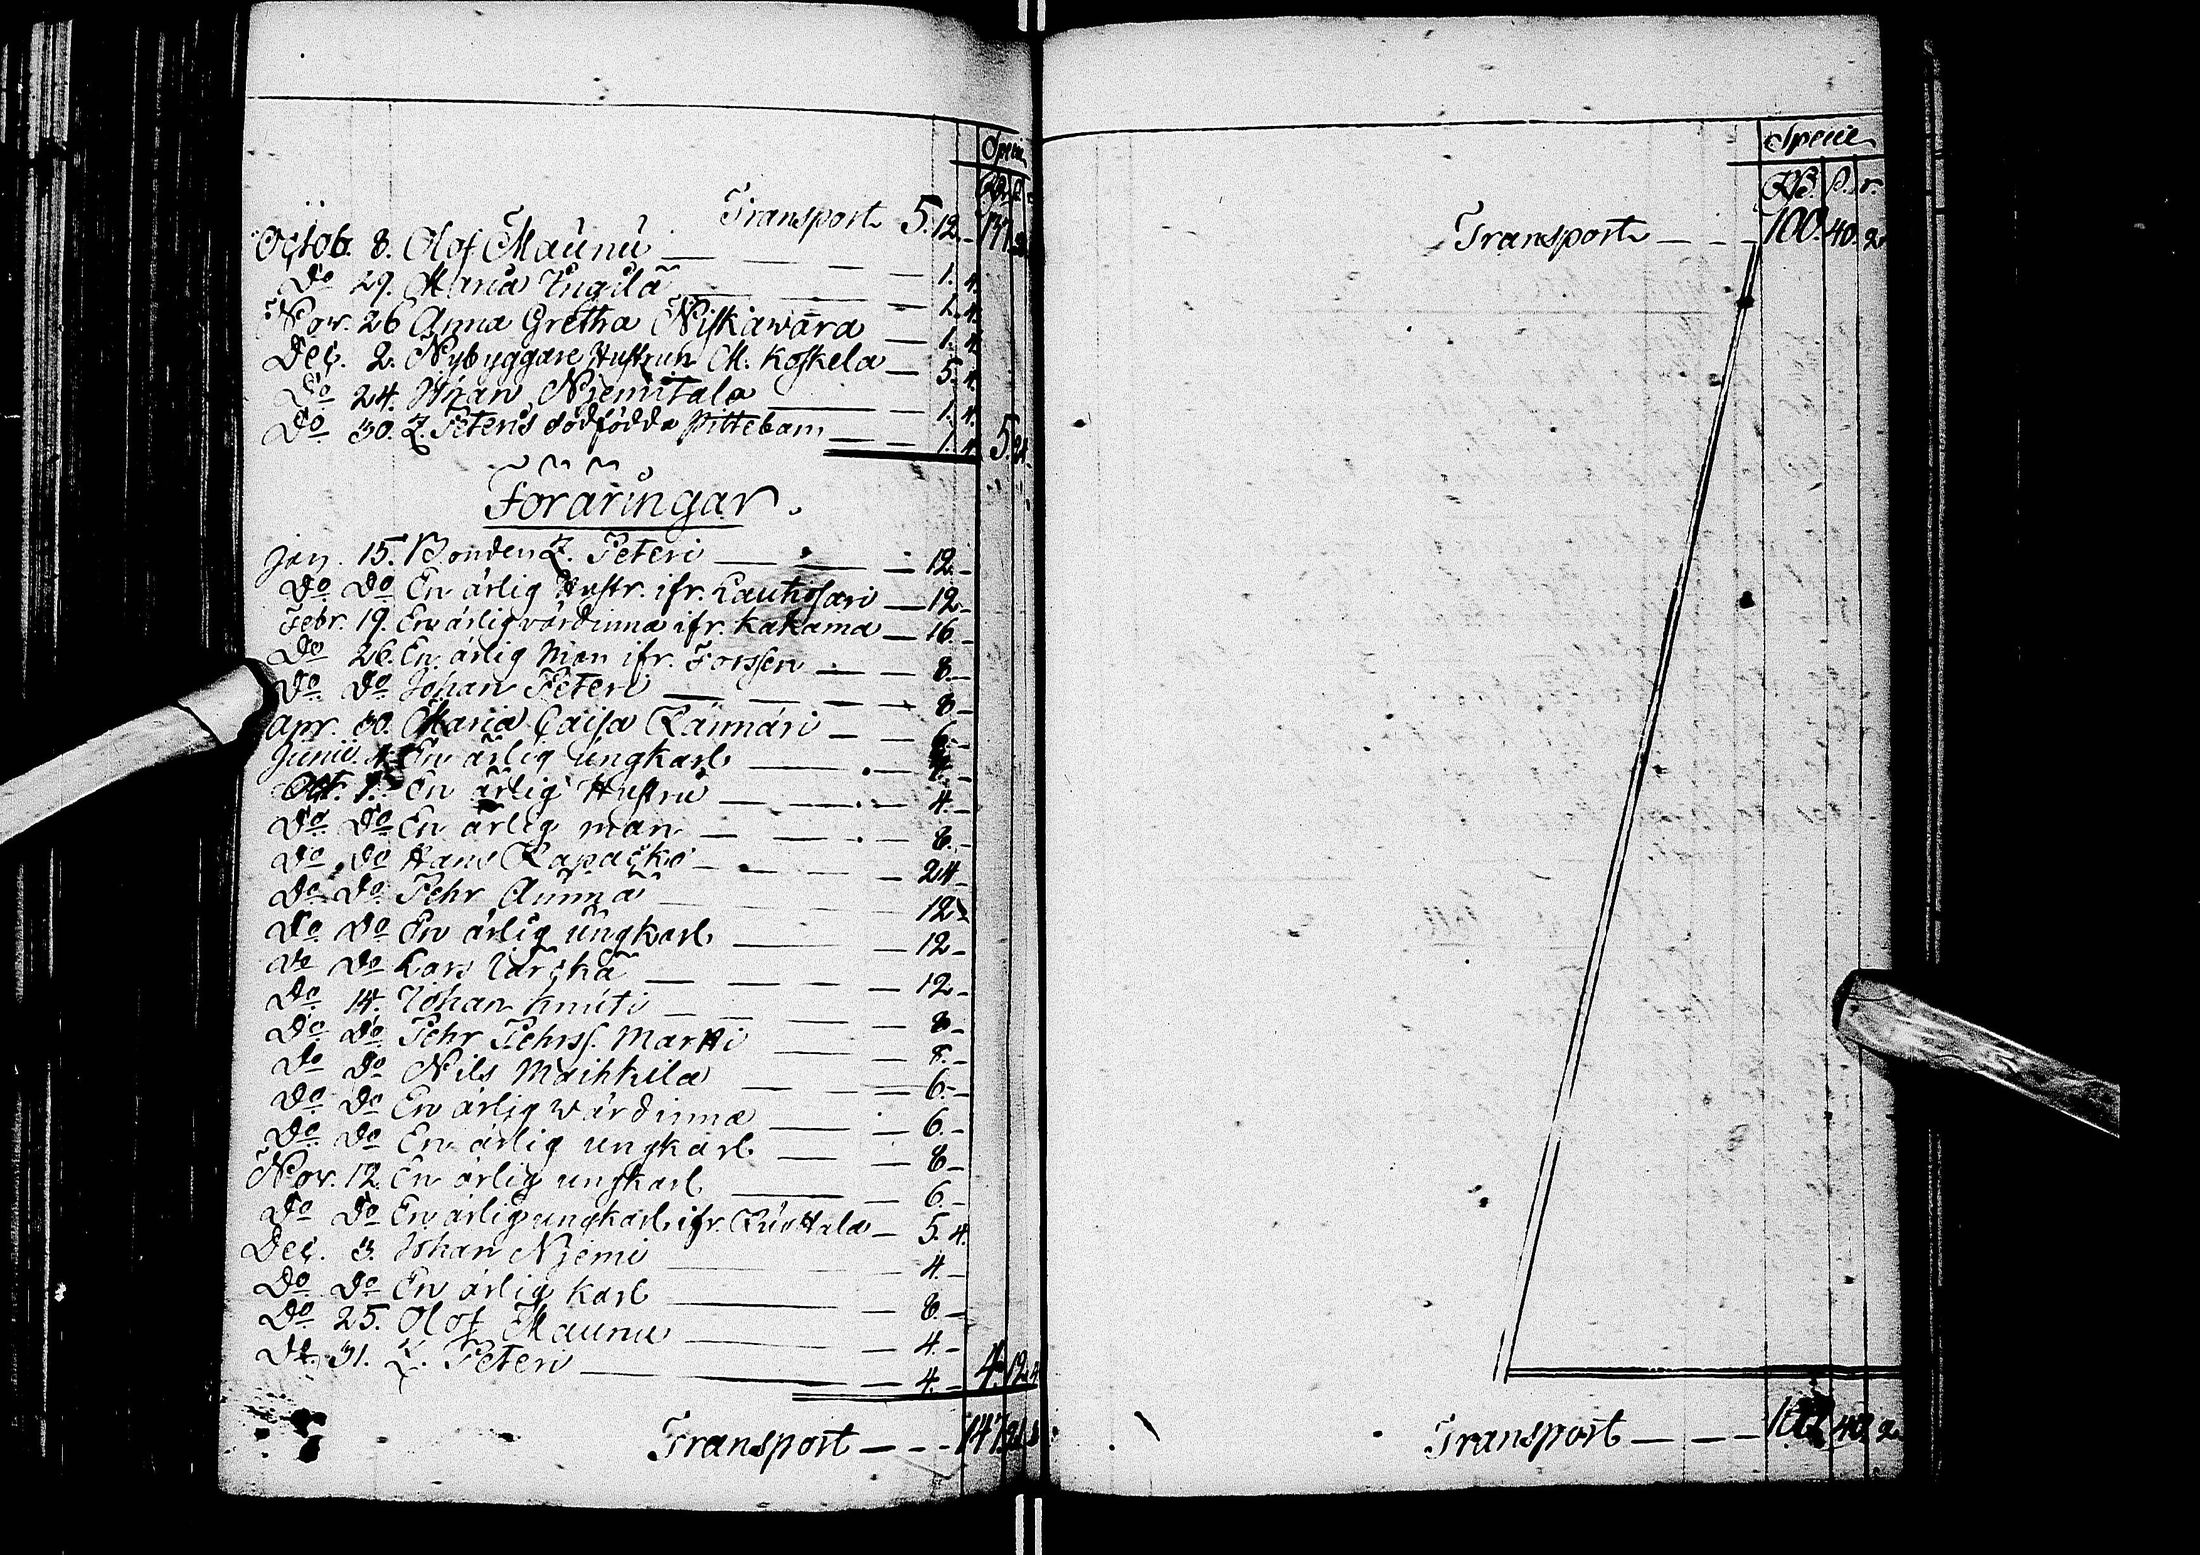 Specie
Transport 5. 12.
Octob. 8. Olof Maunu — 1. 4.
Do 29. Maria Engilä — 1. 4.
Nov. 26 Anna Gretha Niskawara — 1. 4.
Dec. 2. Nybyggare Hustrun M. Koskela — 5. 4.
Do 24. Niemitalo — 1. 4.
Do 30. Z. Peteris dödfödda Pittebarn — 1. 4. 5.
Föräringar.
Jan. 15. Bonden Z. Peteri — 12. -
Do Do En ärlig Hustr. ifr. Lautiosari — 12 -
Febr. 19. En ärlig värdinna ifr. Kakama — 16. -
Do 26. En ärlig Man ifr. Forssen — 8. -
Do Do Johan Peteri — 8 -
Apr. 30. Maria Caisa Kännäri — 6 -
Junii. En ärlig ungkarl —
Oct. 1. En ärlig Hustru — 4. -
Do Do En ärlig man — 8. -
Do Do Hans Rapacko — 24 -
Do Do Pehr Aunna — 12 -
Do Do En ärlig ungkarl — 12 -
Do Do Lars — 12 -
Do 14. Johan Knuti — 8 -
Do Do Pehr Pehrss. Martti — 8. -
Do Do Nils Maihkila — 6 -
Do Do En ärlig wärdinna — 6. -
Do Do En ärlig ungkarl — 8 -
Nov. 12. En ärlig ungkarl — 6. -
Do Do En ärlig ungkarl ifr. — 5. 4.
Dec. 3. Johan Niemi — 4. -
Do Do En ärlig karl — 8. -
Do 25. Olof Maunu — 4. -
Do 31. Z. Peteri — 4. - 4. 12. 4
Transport — 147.
Specie
Rd. s. r.
Transport — 100. 40. 2
Transport — 40. 2